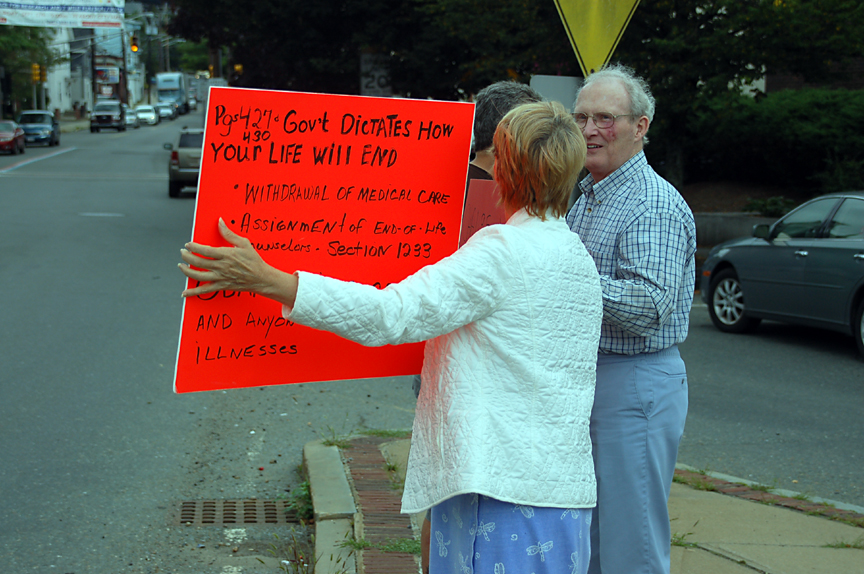 Pgs 427 & Gov't DICTATES HOW
430
YOUR LIFE WILL END
• WITHDRAWAL OF MEDICAL CARE
• ASSIGNMENT OF END-OF-Life
Counselors - SECTION 1233
AND
ILLNESSES